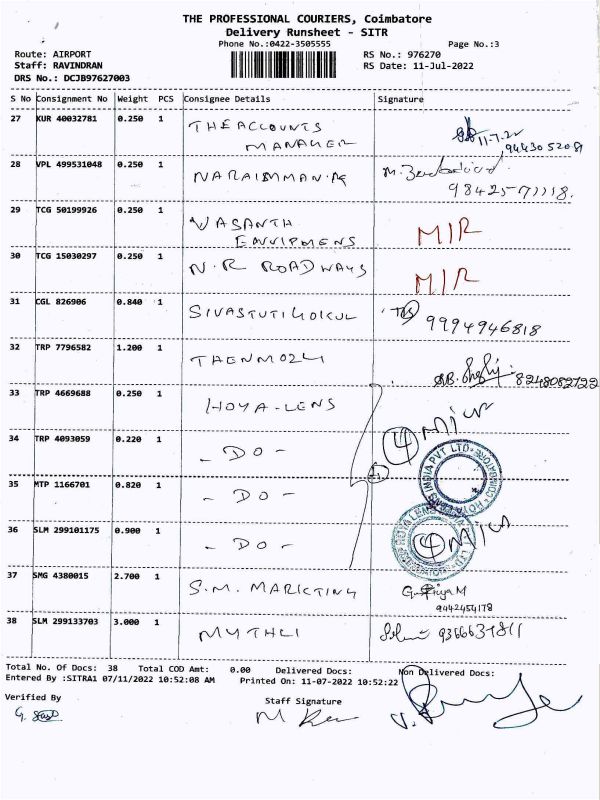 THE PROFESSIONAL COURIERS, Coimbatore
Delivery Runsheet - SITR
Phone No.:0422-3505555 Page No.:3
Route: AIRPORT RS No.: 976270
Staff: RAVINDRAN RS Date: 11-Jul-2022
DRS No.: DCJB97627003
S No Consignment No Weight PCS Consignee Details Signature
27 KUR 40032781 0.250 1 THE ACCOUNTS MANAGER 11-7-22
28 VPL 499531048 0.250 1 98425 71118.
29 TCG 50199926 0.250 1 VASANTH MIR
30 TCG 15030297 0.250 1 N.R ROADWAYS MIR
31 CGL 826906 0.840 1 9994946818
32 TRP 7796582 1.200 1 THENMOZLI
33 TRP 4669688 0.250 1 HOYA-LENS
34 TRP 4093059 0.220 1 - DO - 4
35 MTP 1166701 0.820 1 - DO -
36 SLM 299101175 0.900 1 - DO - 4
37 SMG 4380015 2.700 1 S.M. MARKCTING 9442454178
38 SLM 299133703 3.000 1 MYTHLI
Total No. Of Docs: 38 Total COD Amt: 0.00 Delivered Docs: Non Delivered Docs:
Entered By :SITRA1 07/11/2022 10:52:08 AM Printed On: 11-07-2022 10:52:22
Verified By
Staff Signature